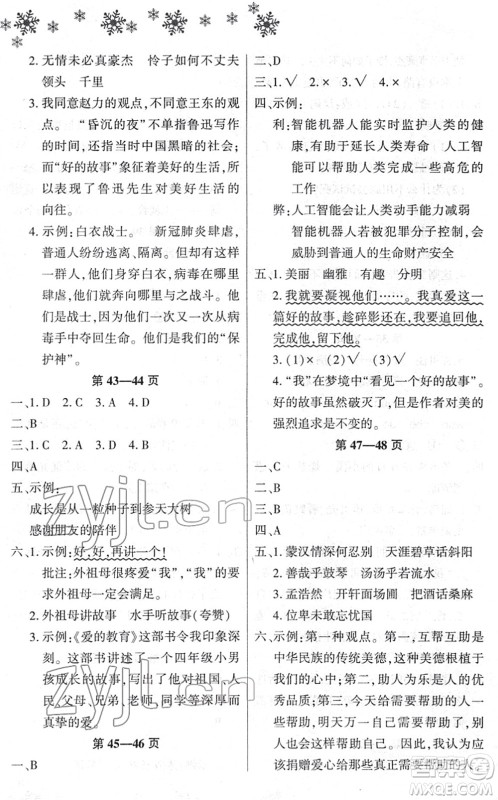 2. 无情未必真豪杰　怜子如何不丈夫
领头　千里
3. 我同意赵力的观点,不同意王东的观
点。　“昏沉的夜”不单单指鲁迅写作
的时间,还指当时中国黑暗的社会;
而“好的故事”象征着美好的生活,所
以表现了鲁迅先生对美好生活的
向往。
4. 示例:白衣战士。　新冠肺炎肆虐,
普通人纷纷逃离、隔离。但有这样
一群人,他们身穿白衣,病毒在哪里
肆虐,他们就奔向哪里与之战斗。他
们是战士,因为他们一次又一次从病
毒手中夺回生命。他们是我们的“保
护神”。
第 43—44 页
一、1. D　2. C　3. A　4. D
二、1. C　2. A　3. B　4. B
三、1. C　2. D　3. D　4. B
四、A
五、示例:
成长是从一粒种子到参天大树
感谢朋友的陪伴
六、1. 示例:好,好,再讲一个!
批注:外祖母很疼爱“我”,“我”的要
求外祖母一定会满足。
2. 外祖母讲故事　水手听故事(夸赞)
3. 示例:《爱的教育》这部书令我印象深
刻。这部书讲述了一个四年级小男
孩成长的故事,体现了他对祖国、人
民、父母、兄弟、老师、同学等深厚而
真挚的爱。
第 45—46 页
一、B
二、D
三、1. √　2. ×　3. √　4. ×
四、示例:
利:智能机器人能实时监护人类的健
康,有助于延长人类寿命　人工智
能可以帮助人类完成一些高危的
工作
弊:人工智能会让人类动手能力减弱
智能机器人若被犯罪分子控制,会
威胁到普通人的生命财产安全
五、1. 美丽　幽雅　有趣　分明
2. 我就要凝视他们……。我真爱这一
篇好的故事,趁碎影还在,我要追回他,
完成他,留下他。
3. (1)×　(2)√　(3)√
4. “我”在梦境中“看见一个好的故事”。
好的故事虽然破灭了,但作者对美的
强烈追求是不变的。
第 47—48 页
一、C
二、B
三、D
四、A
五、1. 蒙汉情深何忍别　天涯碧草话斜阳
2. 善哉乎鼓琴　汤汤乎若流水
3. 孟浩然　开轩面场圃　把酒话桑麻
4. 位卑未敢忘忧国
六、示例:第一种观点。互帮互助是
中华民族的传统美德,这种美德根植于
我们的心中;助人为乐是人们的一种优
秀品质;第二天,给予需要帮助的人一
些帮助,可能会帮助他们渡过难关,所以
我认为真正需要帮助的人,我们应该
捐赠献爱心给需要帮助的人。
zyjl.cn
zyjl.cn
答案圈
MXQE.COM